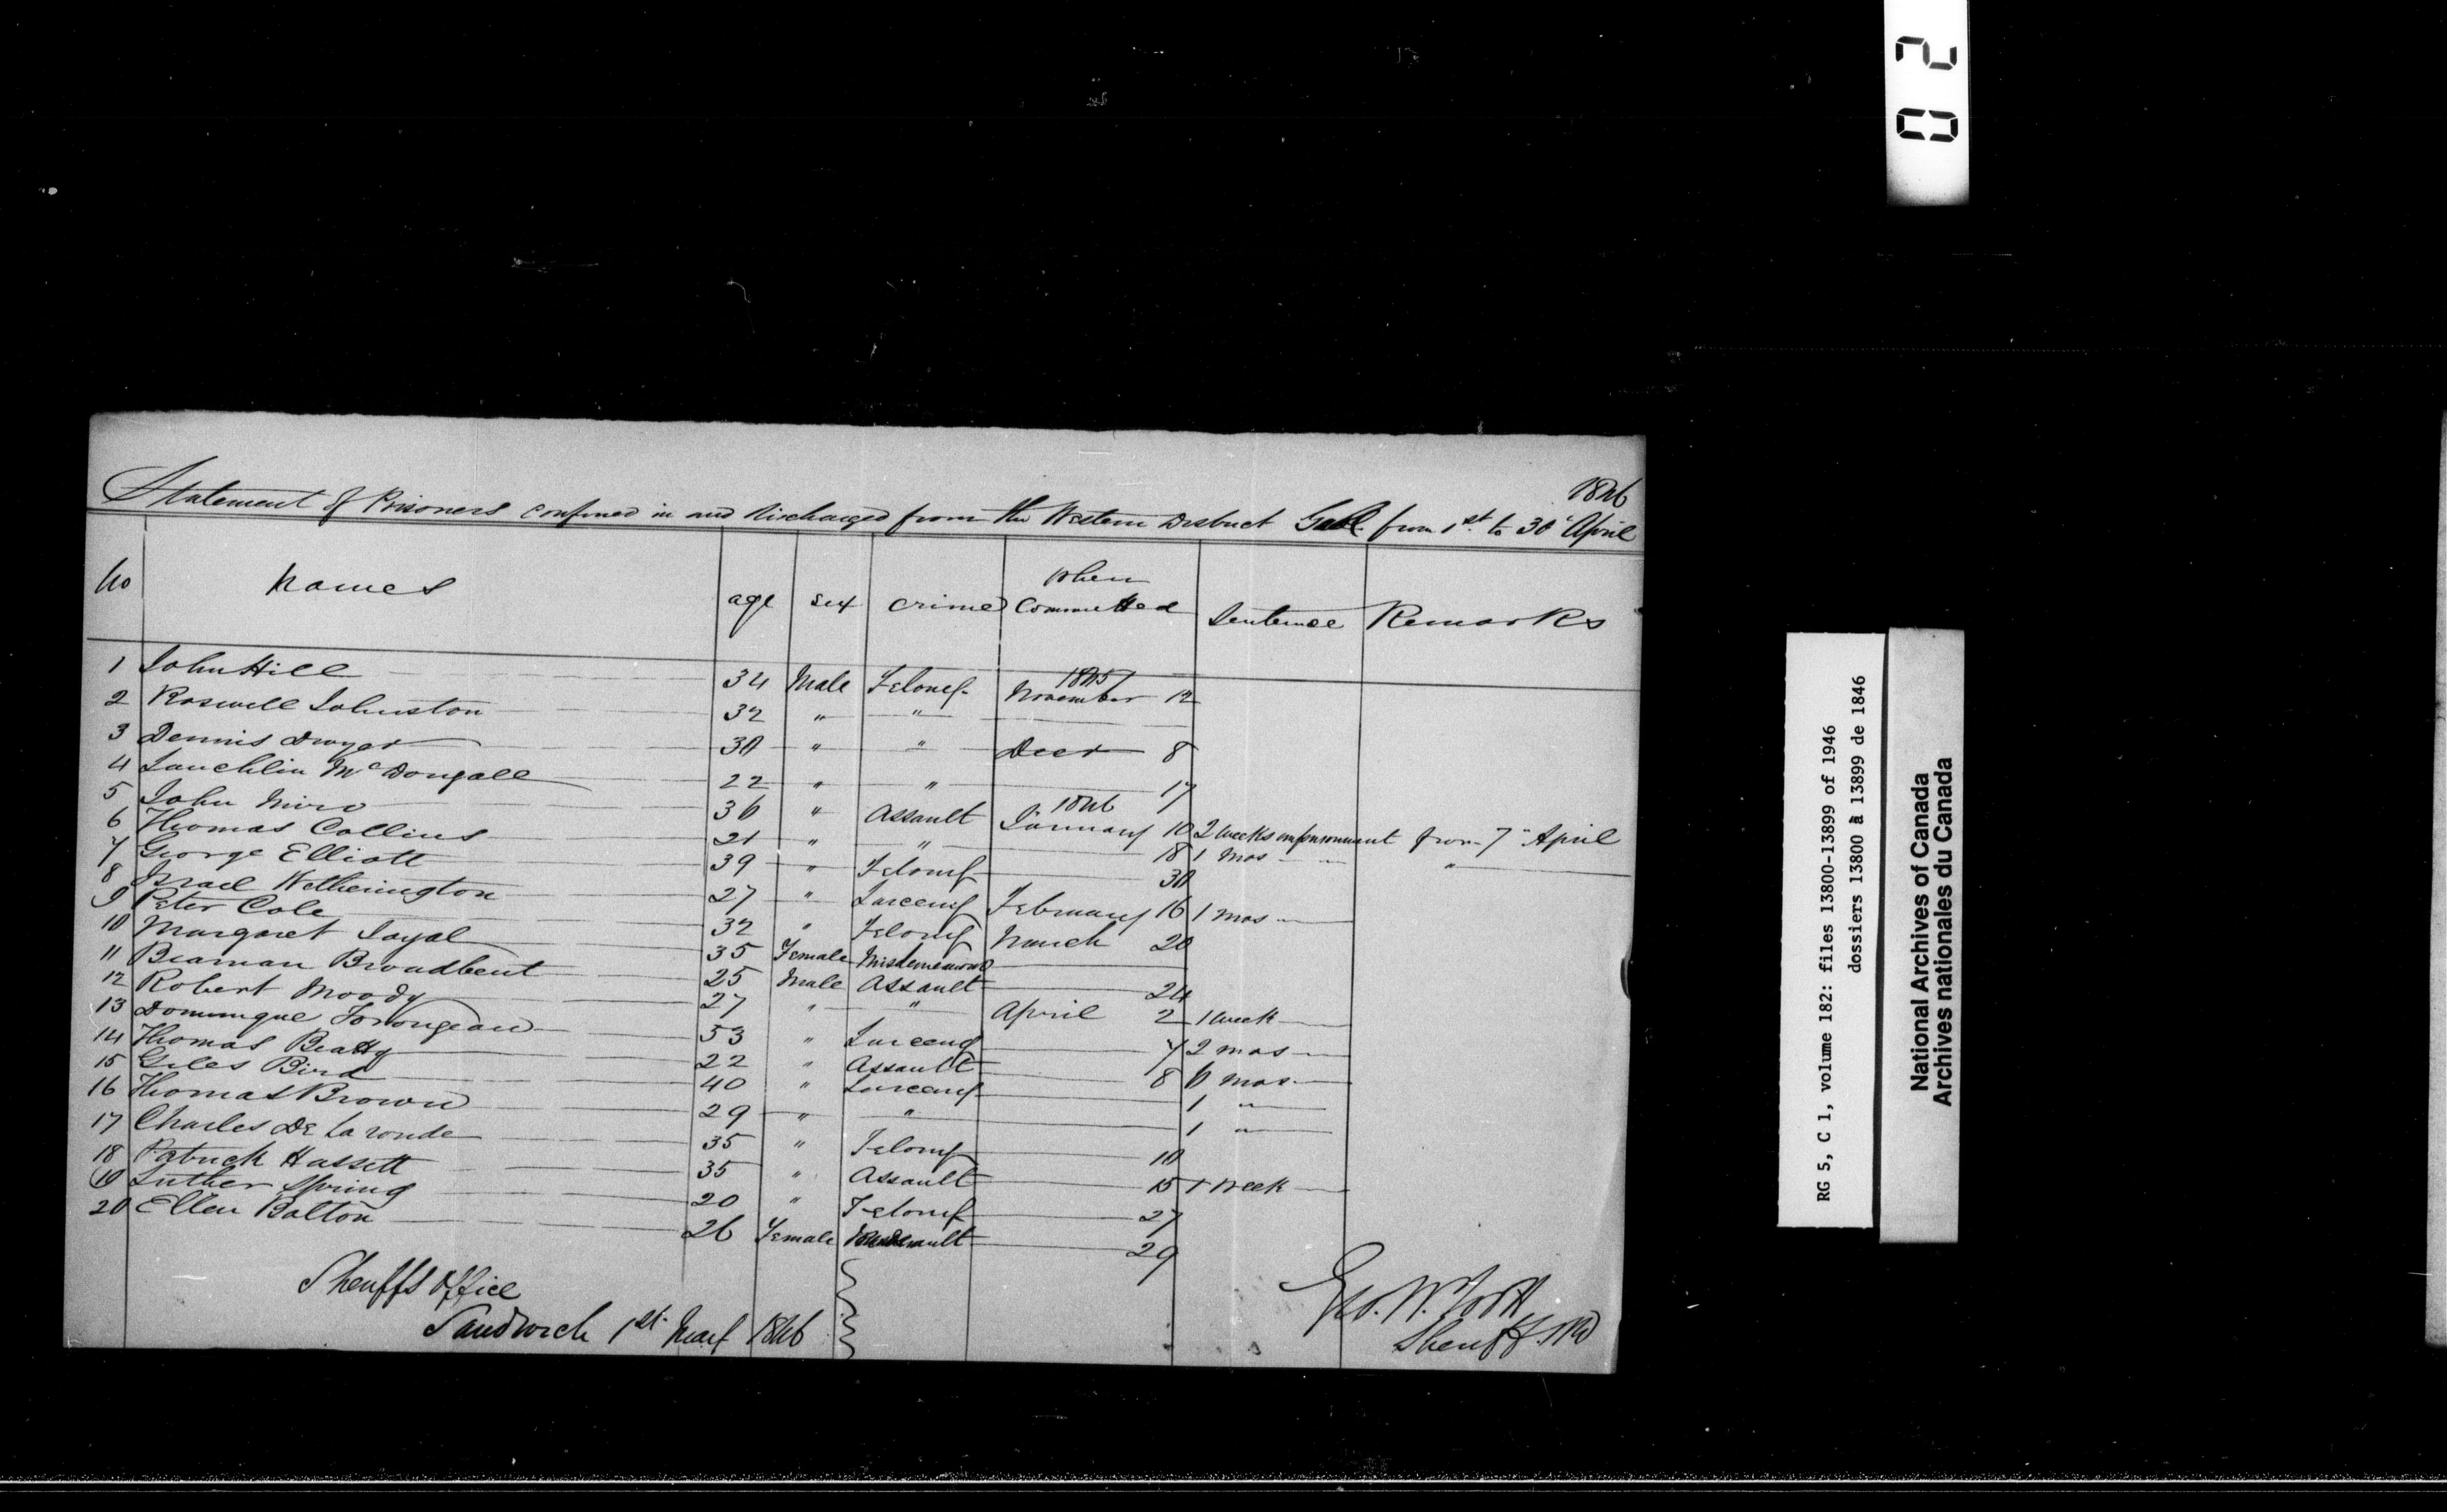 Statement of Prisoners confined in and discharged from the Western District Gaol from 1st to 30" April 1846
No Names age sex crime When Committed Sentence Remarks
1 John Hill 34 Male Felony 1845 November 12
2 Roswell Johnston 32 " "
3 Dennis Dwyer 30 " " Decr 8
4 Lauchlin McDougall 22 " " 17
5 John Miro 36 " Assault 1846 January 10 2 weeks imprisonment from 7" April
6 Thomas Collins 21 " " 18 1 mos "
7 George Elliott 39 " Felony 30
8 Israel Wetherington 27 " Larceny February 16 1 mos
9 Peter Cole 32 " Felony March 20
10 Margaret Loyal 35 Female Misdemeanor
11 Beaman Broadbent 25 Male Assault 24
12 Robert Moody 27 " " April 2 1 week
13 Dominique 53 " Larceny 7 2 mos
14 Thomas Beatty 22 " Assault 8 6 mos
15 Giles Bird 40 " Larceny 1 "
16 Thomas Brown 29 " " 1 "
17 Charles De La ronde 35 " Felony 10
18 Patrick Hassett 35 " Assault 15 1 week
19 Luther Spring 20 " Felony 27
20 Ellen Bolton 26 Female 29
Sheriffs Office
Sandwich 1st May 1846
Geo. W. Foott
Sheriff. WD
02
RG 5, C 1, volume 182: files 13800-13899 of 1946
dossiers 13800 à 13899 de 1846
National Archives of Canada
Archives nationales du Canada